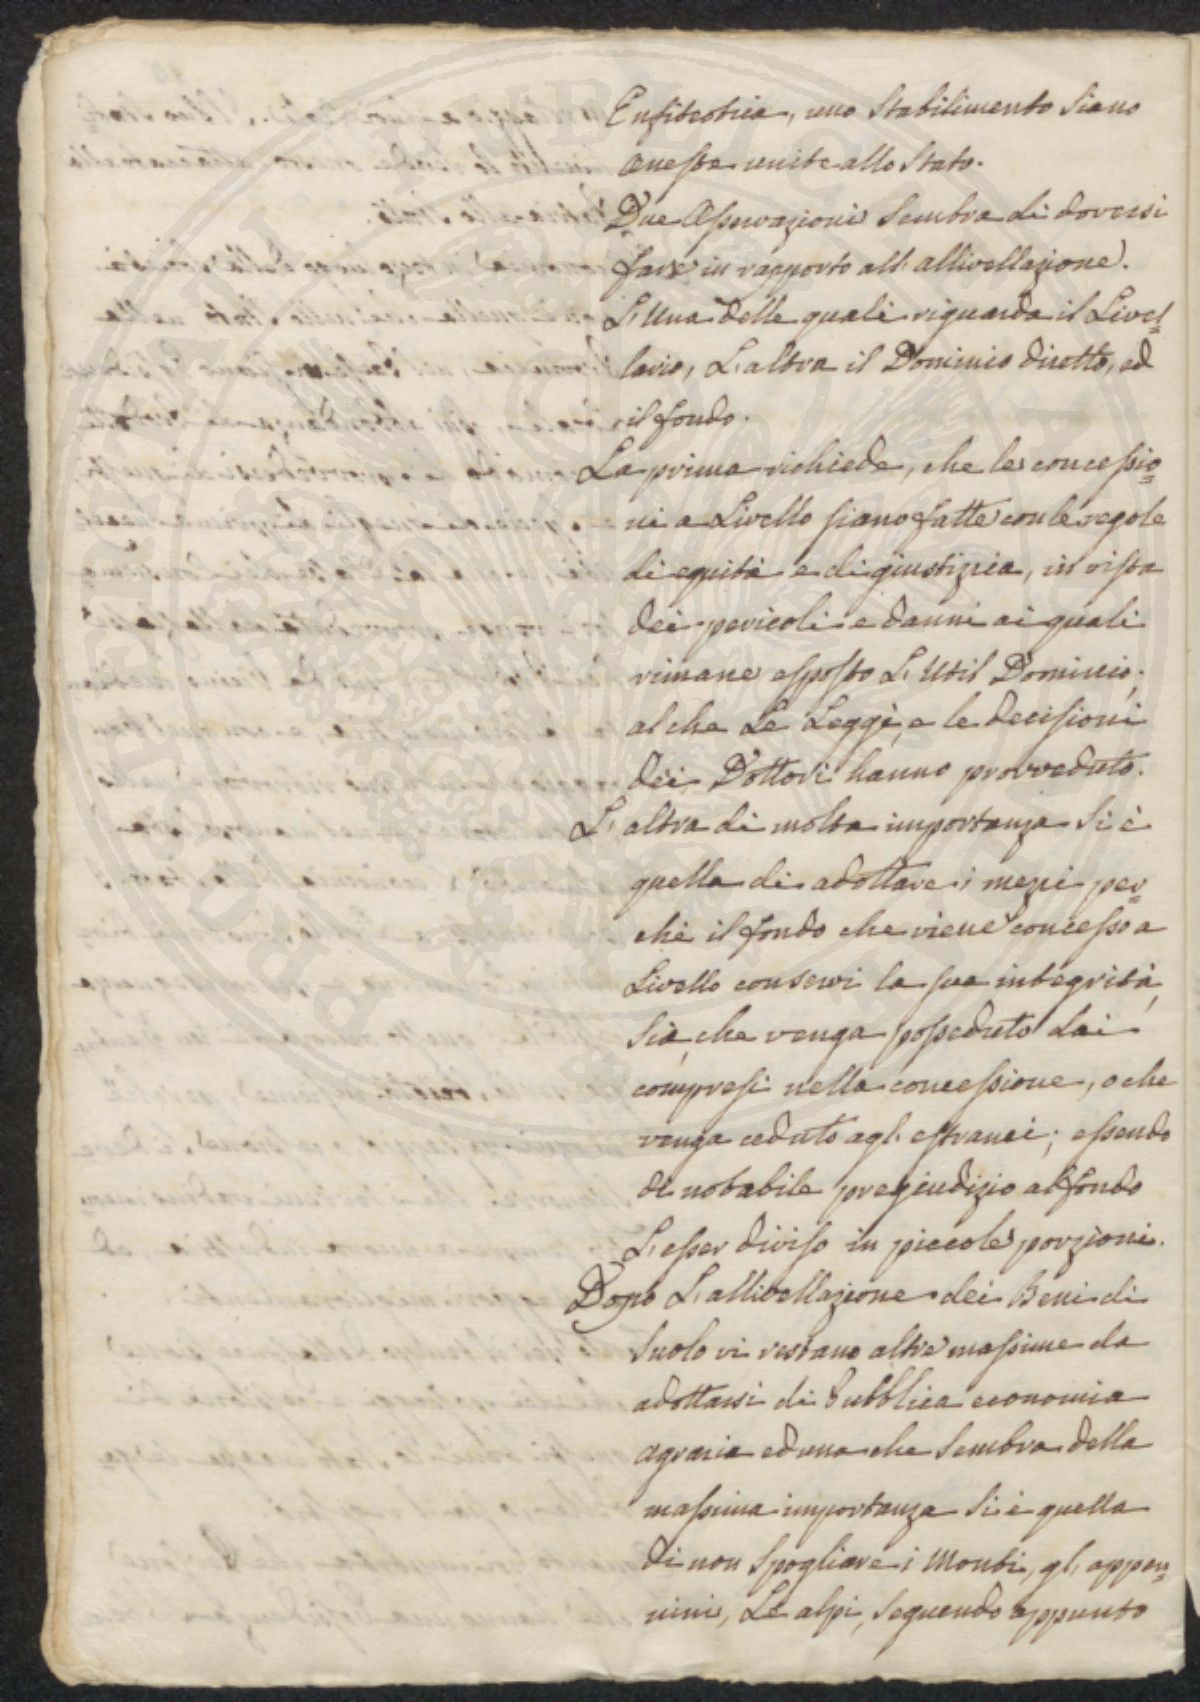 Enfiteotica, uno Stabilimento siano
Queste unite allo Stato.
Due Osservazioni Sembra di doversi
fare in rapporto all' allivellazione.
L'Una delle quali riguarda il Livel=
lario, L'altra il Dominio diretto, ed
il fondo.
La prima richiede, che le concessio=
ni a Livello siano fatte con le regole
di equità e di giustizia, in vista
dei pericoli e danni ai quali
rimane esposto L'Util Dominio;
al che Le Leggi, e le decisioni
dei Dottori hanno provveduto.
L'altra di molta importanza Si è
quella di adottare i mezzi per=
chè il fondo che viene concesso a
Livello conservi la sua integrità,
Sia, che venga posseduto dai
compresi nella concessione, o che
venga ceduto agl'estranei; essendo
di notabile pregiudizio al fondo
L'esser diviso in piccole porzioni.
Dopo L'allivellazione dei Beni di
Suolo vi restano altre massime da
adottarsi di Pubblica economia
agraria ed una che Sembra della
massima importanza Si è quella
di non Spogliare i Monti, gl'appen=
nini, Le alpi, Seguendo appunto